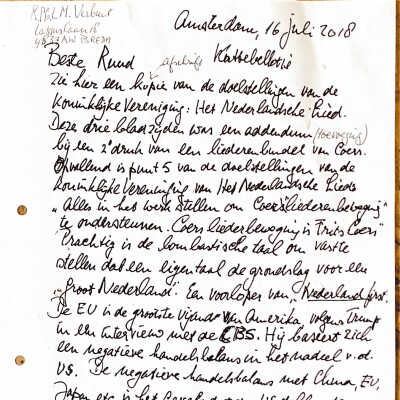 Amsterdam, 16 juli 2018
R. Ph. M. Verbunt
BREDA
Beste Ruud
afschrift Kattebelletje
Zie hier een kopie van de doelstellingen van de
Koninklijke Vereniging: Het Nederlandsche Lied.
Deze drie bladzijden was een addendum (toevoeging)
bij een 2e druk van een liederenbundel van Coers.
Opvallend is punt 5 van de doelstellingen van de
Koninklijke Vereniging van Het Nederlandsche Lied:
"Alles in het werk stellen om Coersliederenbeweging"
te ondersteunen. Coers liederbeweging is Frits Coers"
Prachtig is de bombastische taal om vast te
stellen dat een eigen taal de grondslag voor een
"groot Nederland". Een voorloper van "Nederland first.
De EU is de grootste vijand van Amerika volgens Trump
in een interview met de CBS. Hij baseert zich
een negatieve handelsbalans in het nadeel v.d.
VS. De negatieve handelsbalans met China, EU,
Japan etc is het